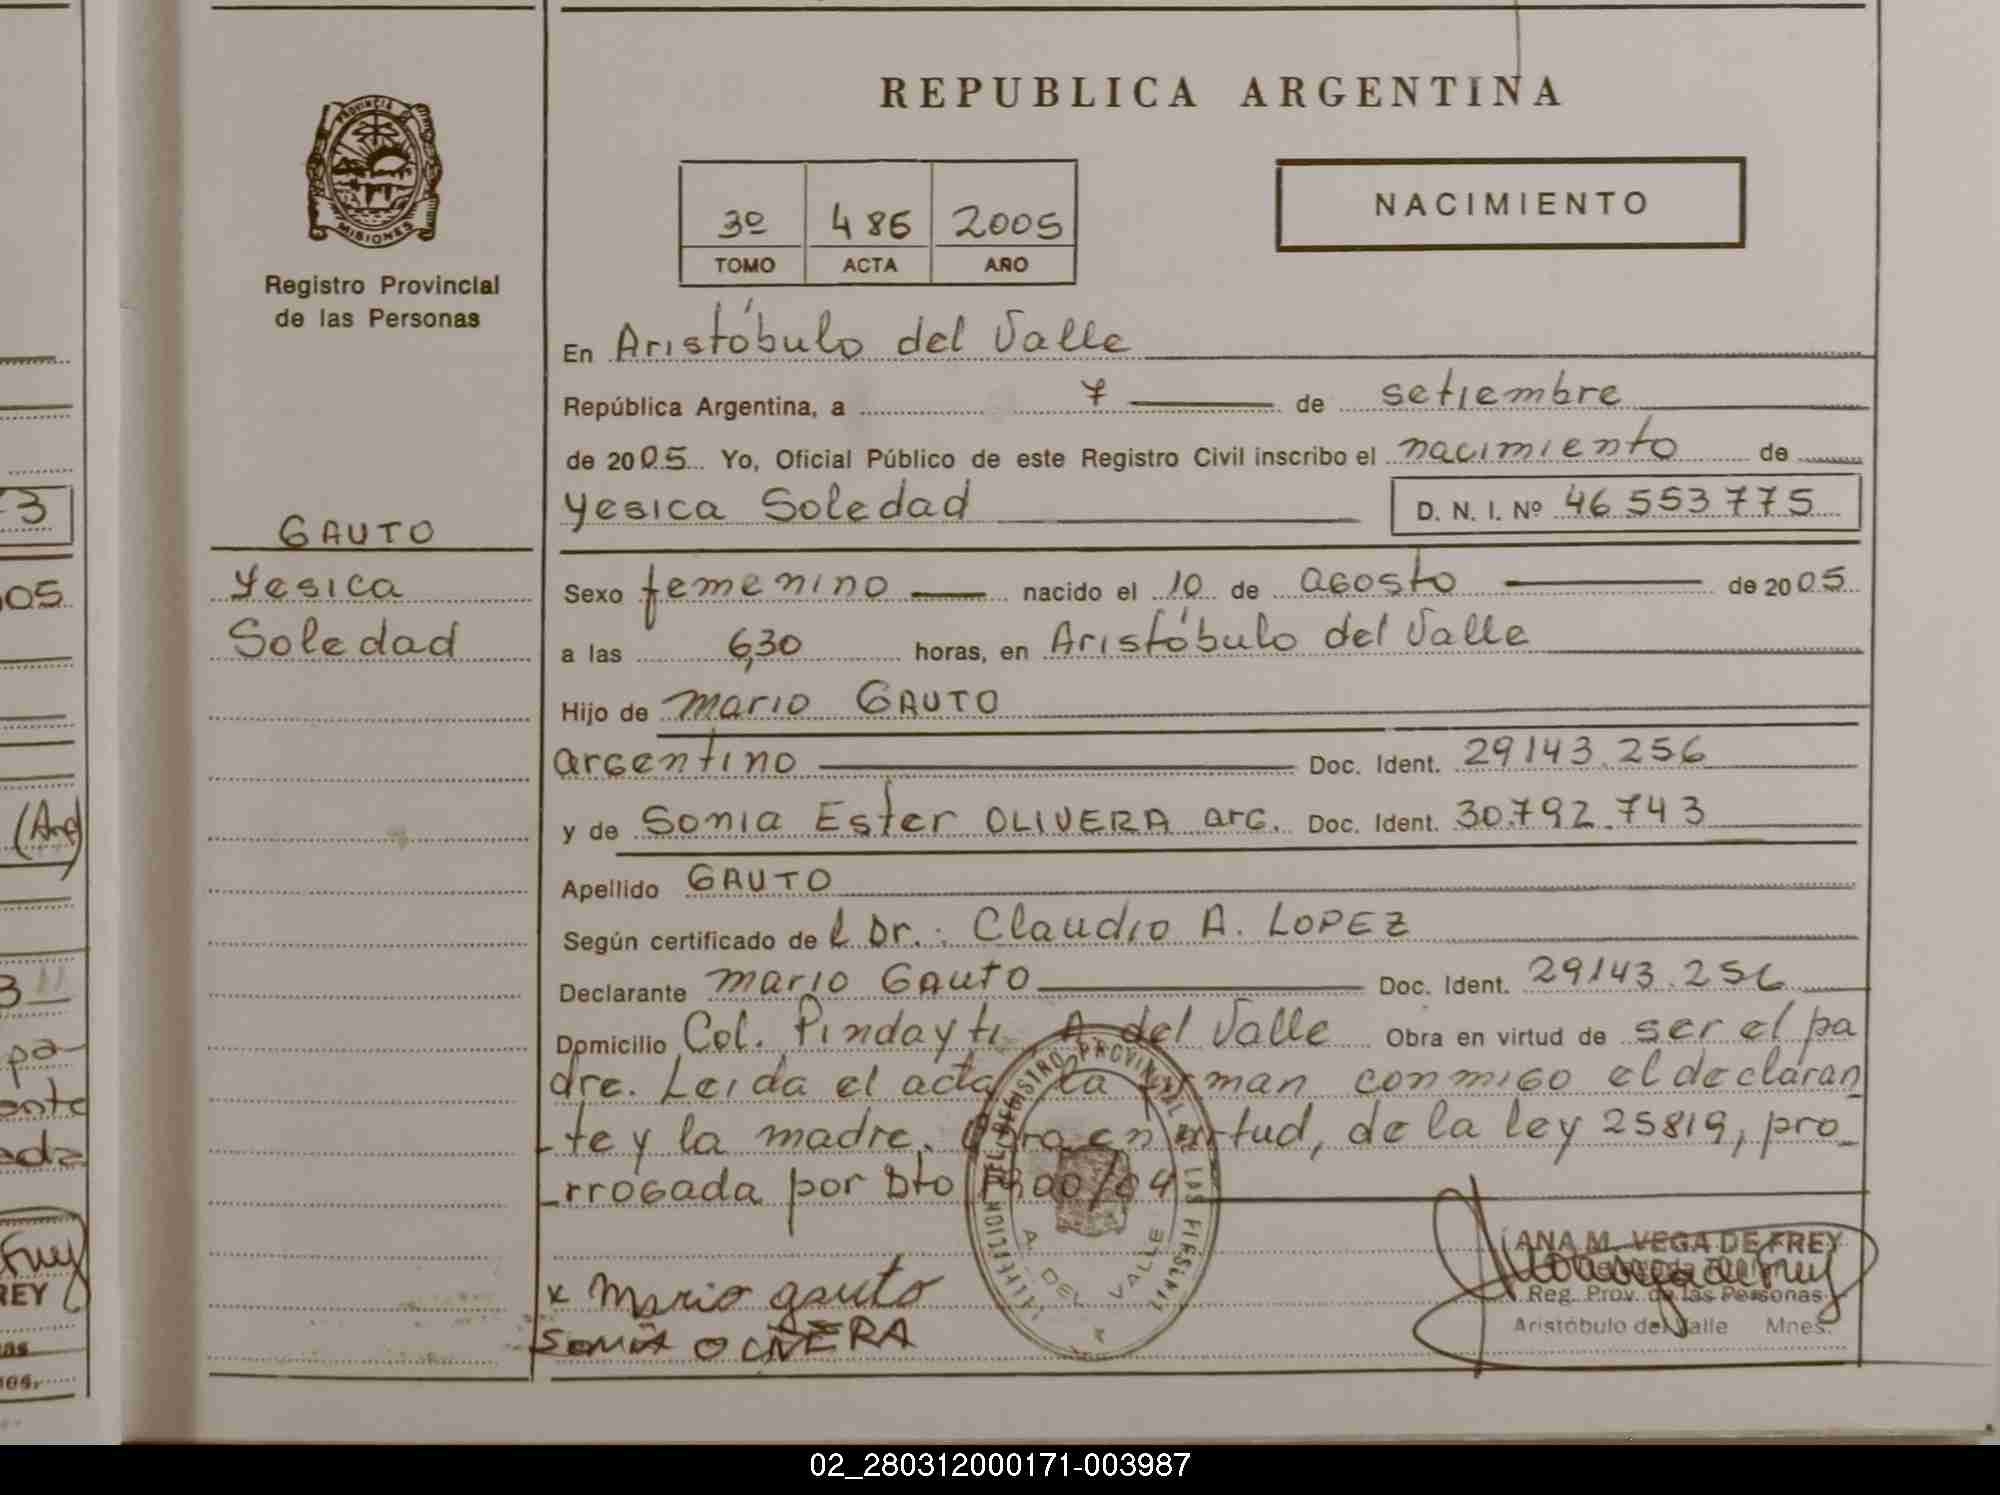 REPUBLICA ARGENTINA
PROVINCIA
MISIONES
Registro Provincial
de las Personas
3º 486 2005
TOMO ACTA AÑO
NACIMIENTO
En Aristóbulo del Valle
República Argentina, a 7 de setiembre
de 2005 Yo, Oficial Público de este Registro Civil inscribo el nacimiento de
Yesica Soledad D. N. I. Nº 46.553.775
GAUTO
Yesica
Soledad
Sexo femenino nacido el 10 de agosto de 2005
a las 6,30 horas, en Aristóbulo del Valle
Hijo de Mario GAUTO
argentino Doc. Ident. 29143.256
y de Sonia Ester OLIVERA arg. Doc. Ident. 30.792.743
Apellido GAUTO
Según certificado de l Dr.: Claudio A. LOPEZ
Declarante Mario GAUTO Doc. Ident. 29143.256
Domicilio Col. Pindayti, A. del Valle Obra en virtud de ser el pa
dre. Leida el acta la firman conmigo el declaran
te y la madre. Obra en virtud, de la ley 25819, pro
rrogada por Dto
x Mario gauto
SONIA OLIVERA
A. DEL VALLE
ANA M. VEGA DE FREY
Reg. Prov. de las Personas
Aristóbulo del Valle Mnes.
02_280312000171-003987